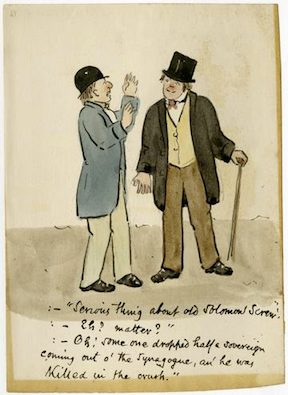 :- "Serious thing about old Solomon Screw".
:- Eh? matter?"
:- Oh! some one dropped half a sovereign
coming out o' the Synagogue, an' he was
killed in the crush."